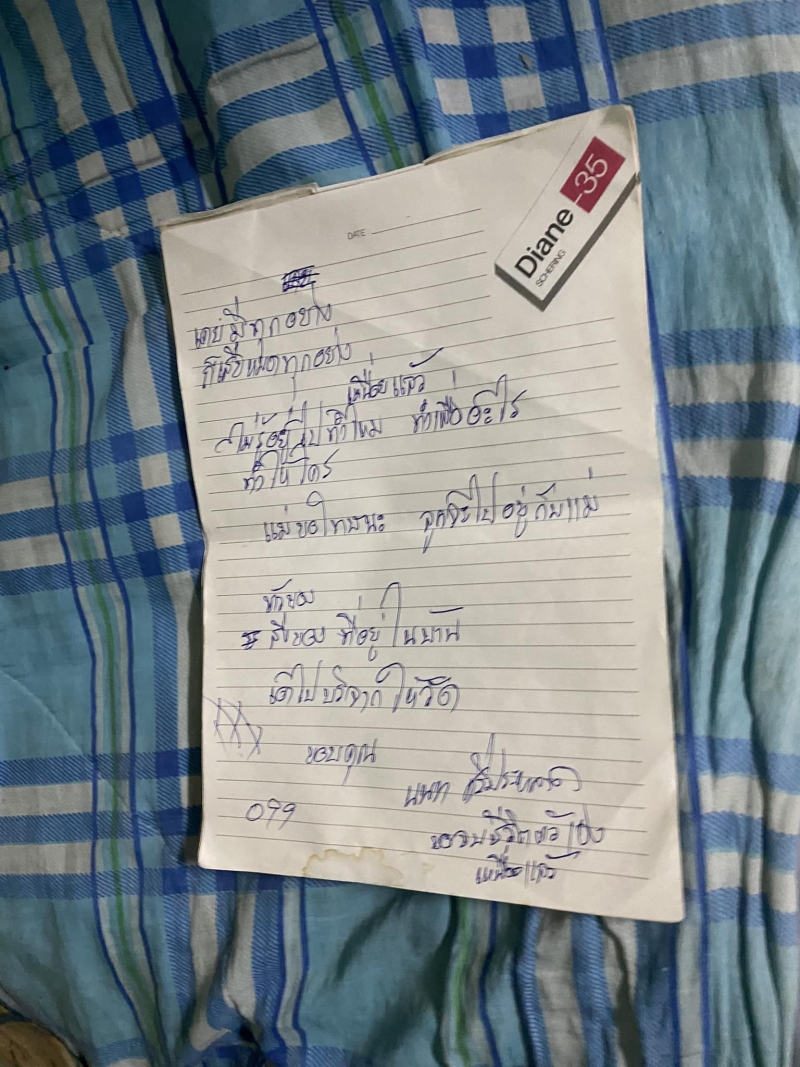 DATE
Diane-35
SCHERING
เคยมีทุกอย่าง
ก็เสียหมดทุกอย่าง
เหนื่อยแล้ว
ไม่รู้อยู่ไปทำไหม ทำเพื่ออะไร
ทำให้ใคร
แม่ขอโทษนะ ลูกจะไปอยู่กับแม่
สิ่งของ ที่อยู่ในบ้าน
เอาไปบริจาก ให้วัด
ขอบคุณ
นนท
099
ขอจบชีวิตตัวเอง
เหนื่อยแล้ว